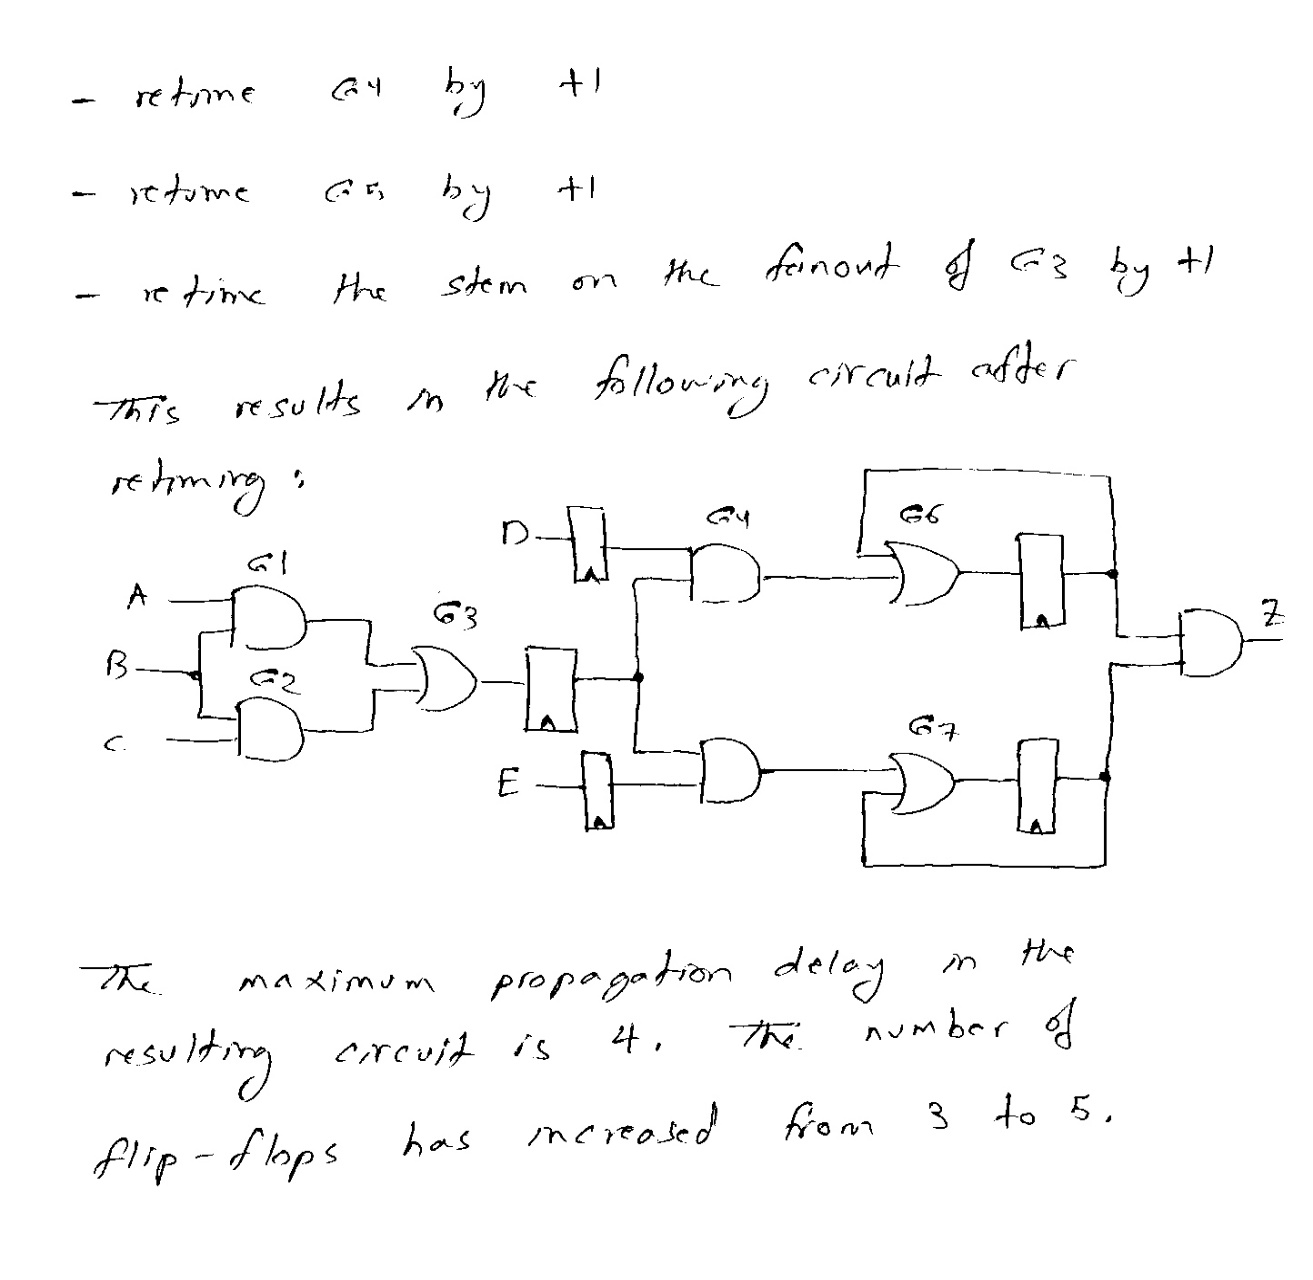 - retime G4 by +1
- retime G5 by +1
- retime the stem on the fanout of G3 by +1
This results in the following circuit after
retiming :
D G4 G6
G1
A G3 Z
B
G2
C G7
E
The maximum propagation delay in the
resulting circuit is 4. The number of
flip-flops has increased from 3 to 5.